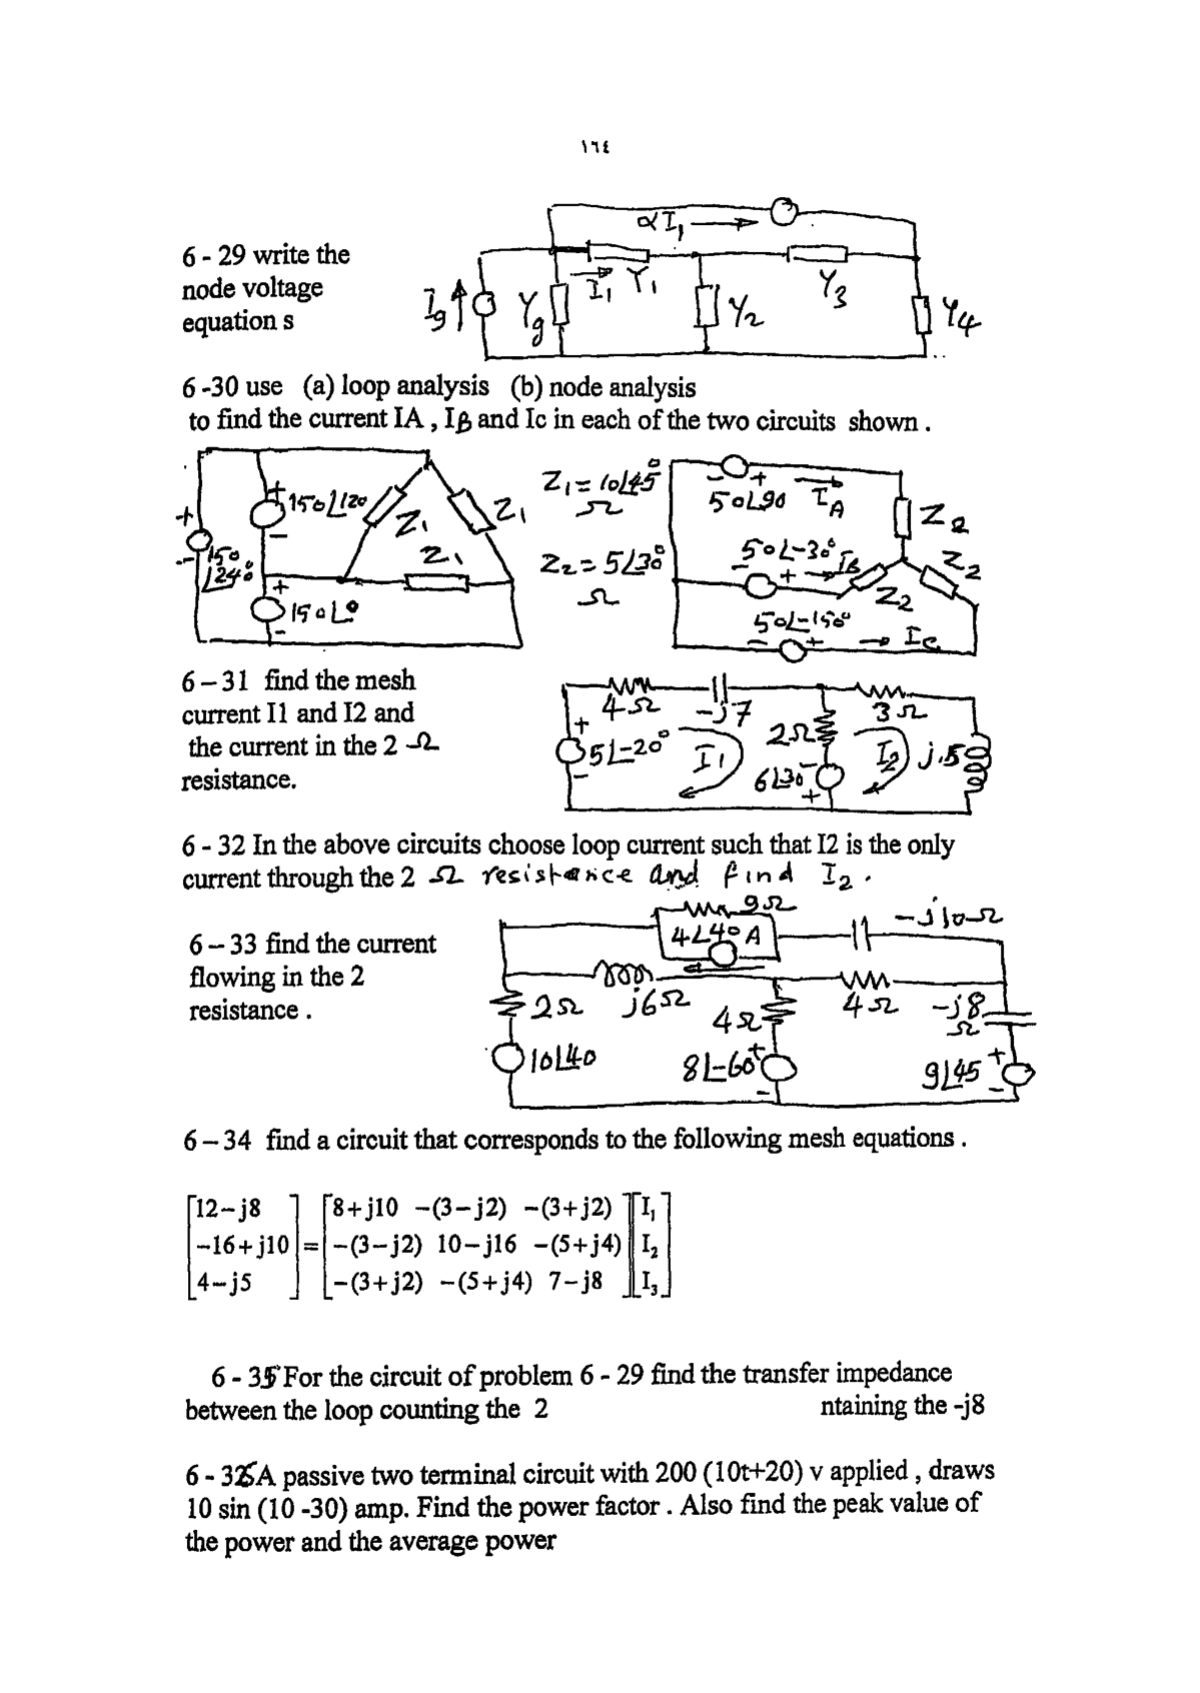 ١٦٤
αI₁
6 - 29 write the
node voltage
equation s
Ig Yg I₁ Y₁ Y₂ Y₃ Y4
6 -30 use (a) loop analysis (b) node analysis
to find the current IA , Iβ and Ic in each of the two circuits shown .
+ 150∠120 - Z₁ Z₁ Z₁
+ - 150 ∠240°
+ 150∠0° -
Z₁ = 10∠45° Ω
Z₂ = 5∠30° Ω
- + 50∠90 IA Z₂
- 50∠-30° + IB Z₂ Z₂
50∠-150° - + Ic
6 – 31 find the mesh
current I1 and I2 and
the current in the 2 Ω
resistance.
4Ω -j7 3Ω
+ 5∠-20° - I₁ 2Ω - 6∠30° + I₂ j.5
6 - 32 In the above circuits choose loop current such that I2 is the only
current through the 2 Ω resistance and find I₂ .
9Ω
4∠40 A -j10Ω
6 – 33 find the current
flowing in the 2
resistance .
2Ω j6Ω 4Ω 4Ω -j8 Ω
10∠40 8∠-60° + - 9∠45 + -
6 – 34 find a circuit that corresponds to the following mesh equations .
[12-j8 ] [8+j10 -(3-j2) -(3+j2) ][I₁]
[-16+j10] = [-(3-j2) 10-j16 -(5+j4)][I₂]
[4-j5 ] [-(3+j2) -(5+j4) 7-j8 ][I₃]
6 - 35 For the circuit of problem 6 - 29 find the transfer impedance
between the loop counting the 2 ntaining the -j8
6 - 36 A passive two terminal circuit with 200 (10t+20) v applied , draws
10 sin (10 -30) amp. Find the power factor . Also find the peak value of
the power and the average power